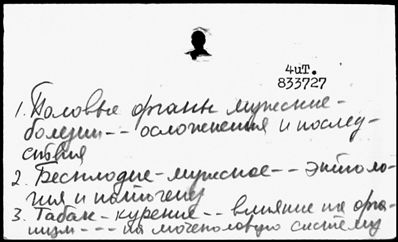 4иТ.
833727
1. Половые органы мужские -
болезни -- осложнения и послед-
ствия
2. Бесплодие - мужское -- этиоло-
гия и патогенез
3. Табак - курение -- влияние на орга-
низм --- на мочеполовую систему